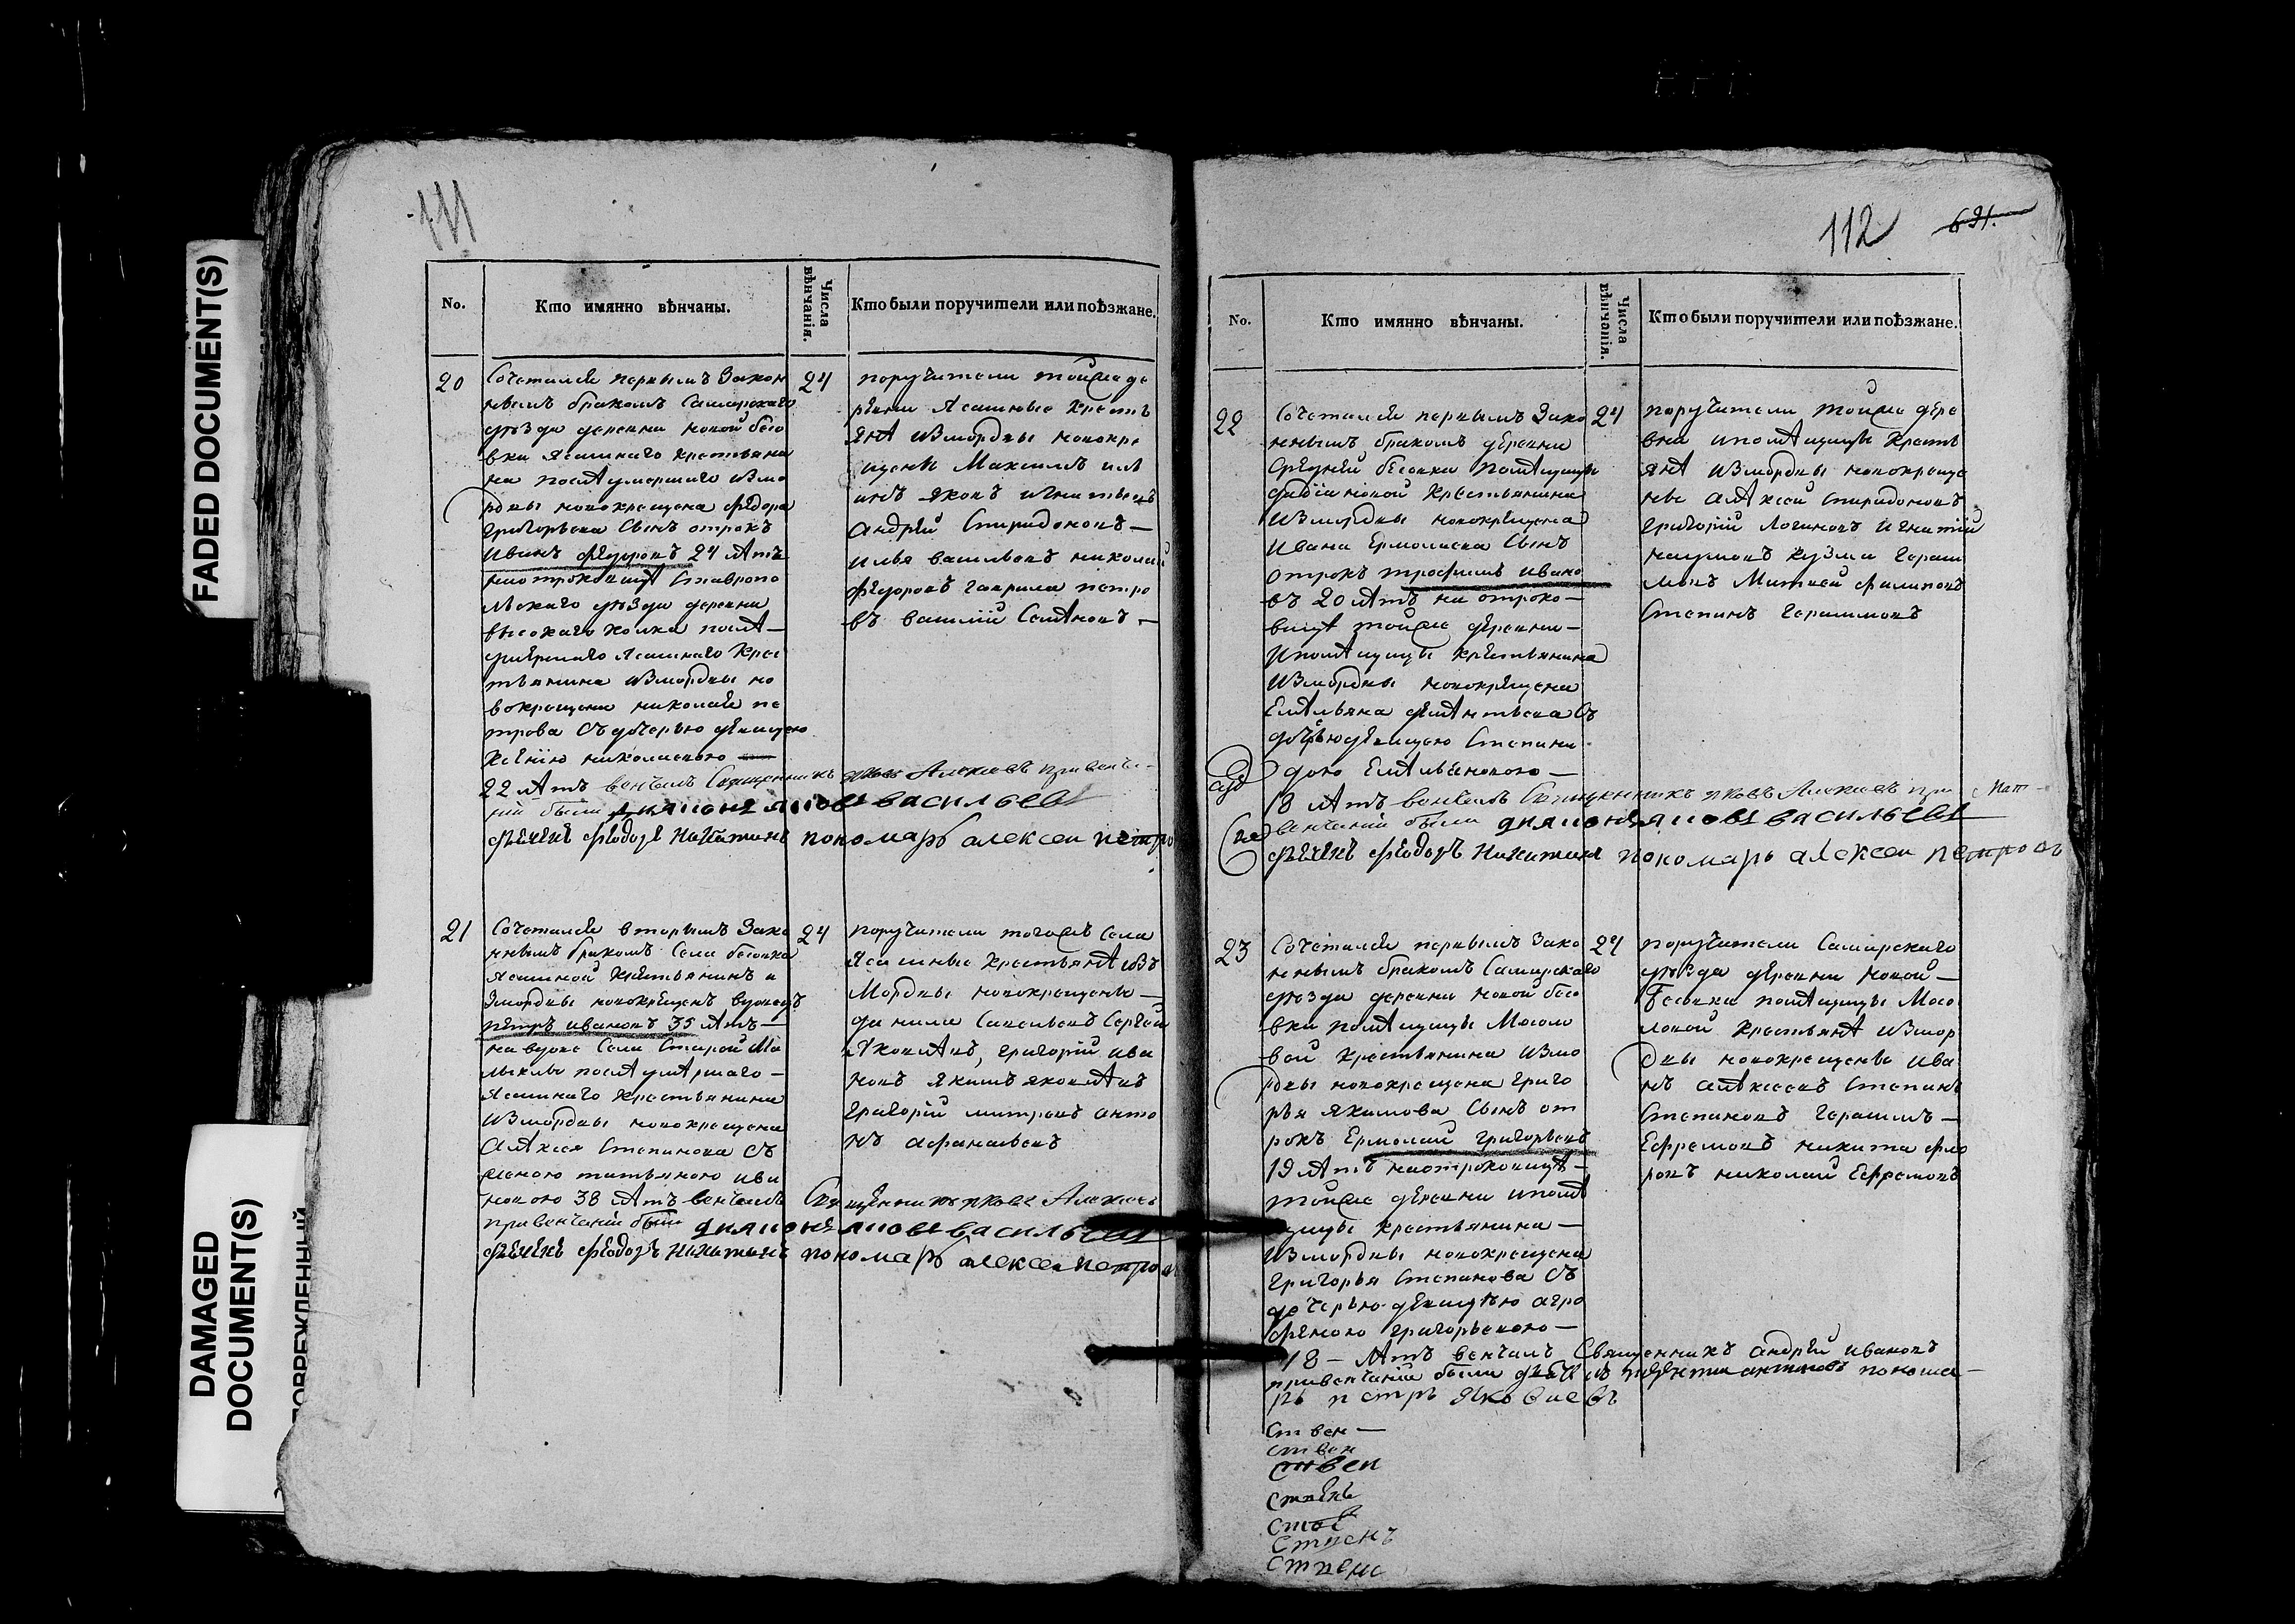 FADED DOCUMENT(S)
DAMAGED
DOCUMENT(S)
ПОВРЕЖДЕННЫЙ
111
No.
Кто имянно вѣнчаны.
Числа
вѣнчанія.
Кто были поручители или поѣзжане.
20
Сочетался первымъ закон
нымъ бракомъ Самарскаго
уѣзда деревни новой бесо
вки ясашнаго крестьяни
на послѣ умершаго измо
рдвы новокрещена Федора
Григорьева сынъ отрокъ
Иванъ Федоровъ 24 лѣтъ
наотроковицѣ Ставропо
льскаго уѣзда деревни
высокаго колка послѣ —
умершаго ясашнаго крес
тьянина измордвы но
вокрещена николая пе
трова съ дочерью девицею
Ксениею николаевою —
22 лѣтъ венчалъ Священникъ Яковъ Алексеевъ привенча
нии были дияконъ яковъ васильевъ
Федоръ Никитинъ пономарь алексеи петро
24
поручители тойже де
ревни ясашные кресть
янѣ измордвы новокре
щены Максимъ
инъ яковъ игнатьевъ
андрей Спиридоновъ —
илья васильевъ николай
Федоровъ гаврила петро
въ василий Семѣновъ —
21
Сочетался вторымъ зако
ннымъ бракомъ села бесовки
ясашной крестьянинъ и
змордвы новокрещенъ вдовецъ
петръ ивановъ 35 лѣтъ —
на вдове села Старой Ма
йны послѣ умѣршаго —
ясашнаго крестьянина
измордвы новокрещена
Алѣксея Степанова съ
женою татьяною ива
новою 38 лѣтъ венчалъ Священникъ яковъ Алексеевъ
привенчании были дияконъ яковъ васильевъ
Федоръ Никитинъ пономарь алексеи петров
24
поручители тогожъ села
ясашные крестьянѣ изъ
Мордвы новокрещены —
данила Савельевъ Сергей
Яковлѣвъ, григорий ива
новъ якимъ яковлѣвъ
григорий митровъ анто
нъ афанасьевъ
112
631.
No.
Кто имянно вѣнчаны.
Числа
вѣнчанія.
Кто были поручители или поѣзжане.
22
Сочетался первымъ зако
ннымъ бракомъ деревни
средней бесовки помѣщицы
крестьянина
измордвы новокрещена
Ивана Ермолаева сынъ
отрокъ трофимъ ивано
въ 20 лѣтъ на отроко —
вицѣ тойже деревни —
и помѣщицы крестьянина
измордвы новокрещена
Емѣльяна демѣнтьева съ
дочерью девицею Степани
дою Емѣльяновою —
18 лѣтъ венчалъ Священникъ яковъ Алексеевъ при
венчании были дияконъ яковъ васильевъ
Федоръ Никитинъ пономарь алексеи петровъ
24
поручители тойже дере
вни и помѣщицы кресть
янѣ измордвы новокреще
ны алѣксей спиридоновъ
григорий логиновъ игнатий
наумовъ кузма гераси
мовъ Матвей филиповъ
Степанъ герасимовъ
23
Сочетался первымъ зако
ннымъ бракомъ Самарскаго
уѣзда деревни новой бесо
вки помѣщицы Мосоло
вой крестьянина измо
рдвы новокрещена григо
рья якимова сынъ от
рокъ Ермолай григорьевъ
19 лѣтъ наотроковицѣ —
тойже деревни и помѣ
щицы крестьянина —
измордвы новокрещена
григорья Степанова съ
дочерью девицѣю агро
феною григорьевою —
18 — лѣтъ венчалъ Священникъ андрей ивановъ
привенчании были понома —
рь петръ яковлевъ
24
поручители Самарскаго
уѣзда деревни новой —
бесовки помѣщицы Мосо
ловой крестьянѣ измор
двы новокрещены ива
нъ алѣксеевъ степанъ
Степановъ герасимъ —
Ефремовъ никита фло
ровъ николай Ефремовъ
ствен —
ствен
ствен